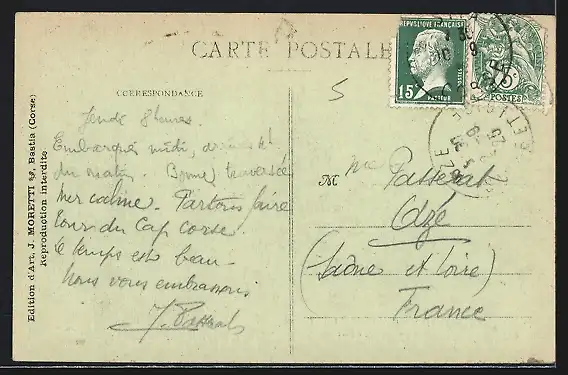 CARTE POSTALE
CORRESPONDANCE
Jeudi 8 heures.
Embarqués midi, arrivés
du matin. Bonne traversée
Mer calme. Partons faire
tour du Cap corse
le temps est beau
Nous vous embrassons
Edition d'Art, J. MORETTI, Bastia (Corse)
Reproduction interdite
RÉPUBLIQUE FRANÇAISE
15c
POSTES
5
POSTES
5
M me Passerat
Azé
(Saône et Loire)
France